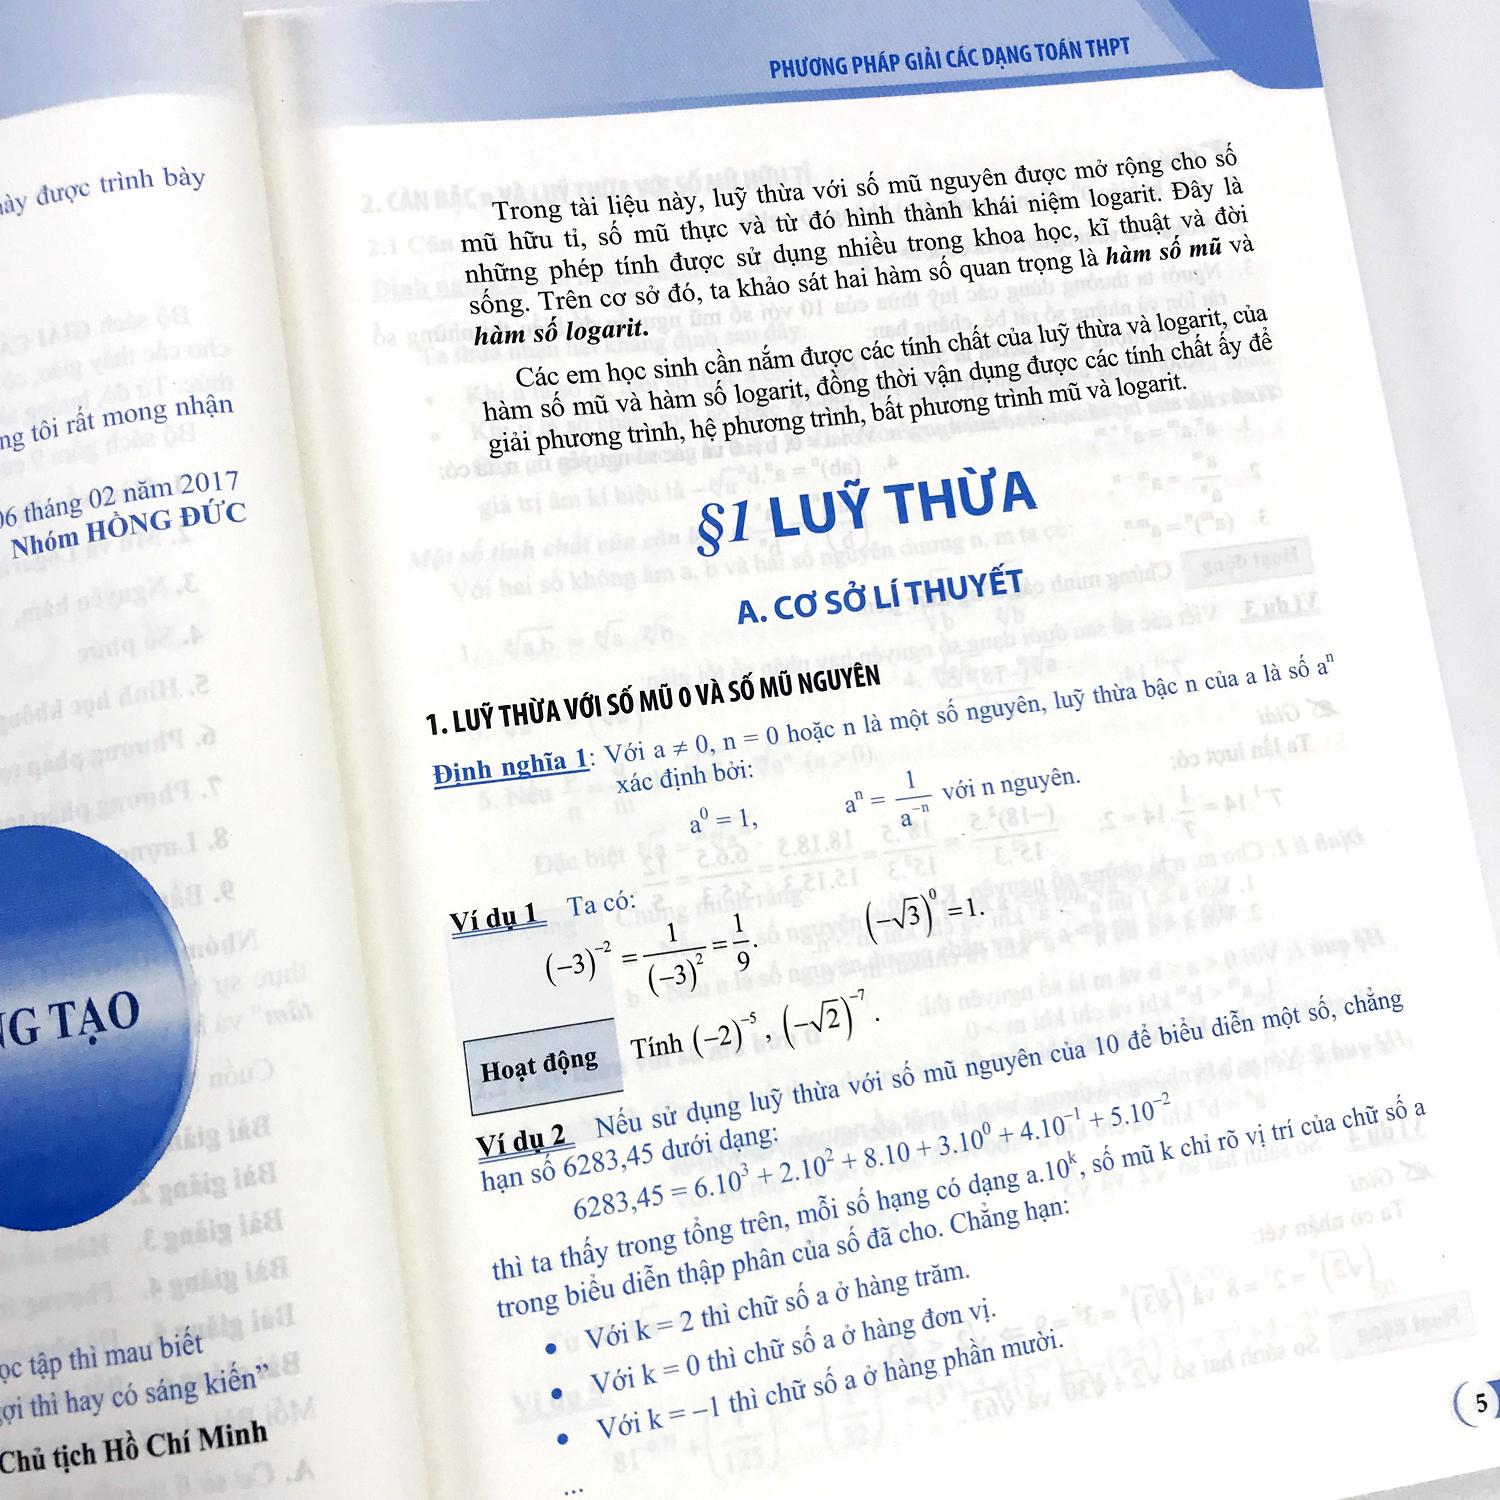 ày được trình bày
ng tôi rất mong nhận
06 tháng 02 năm 2017
Nhóm HỒNG ĐỨC
NG TẠO
ọc tập thì mau biết
gợi thì hay có sáng kiến”
Chủ tịch Hồ Chí Minh
PHƯƠNG PHÁP GIẢI CÁC DẠNG TOÁN THPT
Trong tài liệu này, luỹ thừa với số mũ nguyên được mở rộng cho số
mũ hữu tỉ, số mũ thực và từ đó hình thành khái niệm logarit. Đây là
những phép tính được sử dụng nhiều trong khoa học, kĩ thuật và đời
sống. Trên cơ sở đó, ta khảo sát hai hàm số quan trọng là hàm số mũ và
hàm số logarit.
Các em học sinh cần nắm được các tính chất của luỹ thừa và logarit, của
hàm số mũ và hàm số logarit, đồng thời vận dụng được các tính chất ấy để
giải phương trình, hệ phương trình, bất phương trình mũ và logarit.
§1 LUỸ THỪA
A. CƠ SỞ LÍ THUYẾT
1. LUỸ THỪA VỚI SỐ MŨ 0 VÀ SỐ MŨ NGUYÊN
Định nghĩa 1: Với a ≠ 0, n = 0 hoặc n là một số nguyên, luỹ thừa bậc n của a là số aⁿ
xác định bởi:
a⁰ = 1, aⁿ = 1/a⁻ⁿ với n nguyên.
Ví dụ 1 Ta có:
(−3)⁻² = 1/(−3)² = 1/9. (−√3)⁰ = 1.
Hoạt động Tính (−2)⁻⁵, (−√2)⁻⁷.
Ví dụ 2 Nếu sử dụng luỹ thừa với số mũ nguyên của 10 để biểu diễn một số, chẳng
hạn số 6283,45 dưới dạng:
6283,45 = 6.10³ + 2.10² + 8.10 + 3.10⁰ + 4.10⁻¹ + 5.10⁻²
thì ta thấy trong tổng trên, mỗi số hạng có dạng a.10ᵏ, số mũ k chỉ rõ vị trí của chữ số a
trong biểu diễn thập phân của số đã cho. Chẳng hạn:
• Với k = 2 thì chữ số a ở hàng trăm.
• Với k = 0 thì chữ số a ở hàng đơn vị.
• Với k = −1 thì chữ số a ở hàng phần mười.
...
5